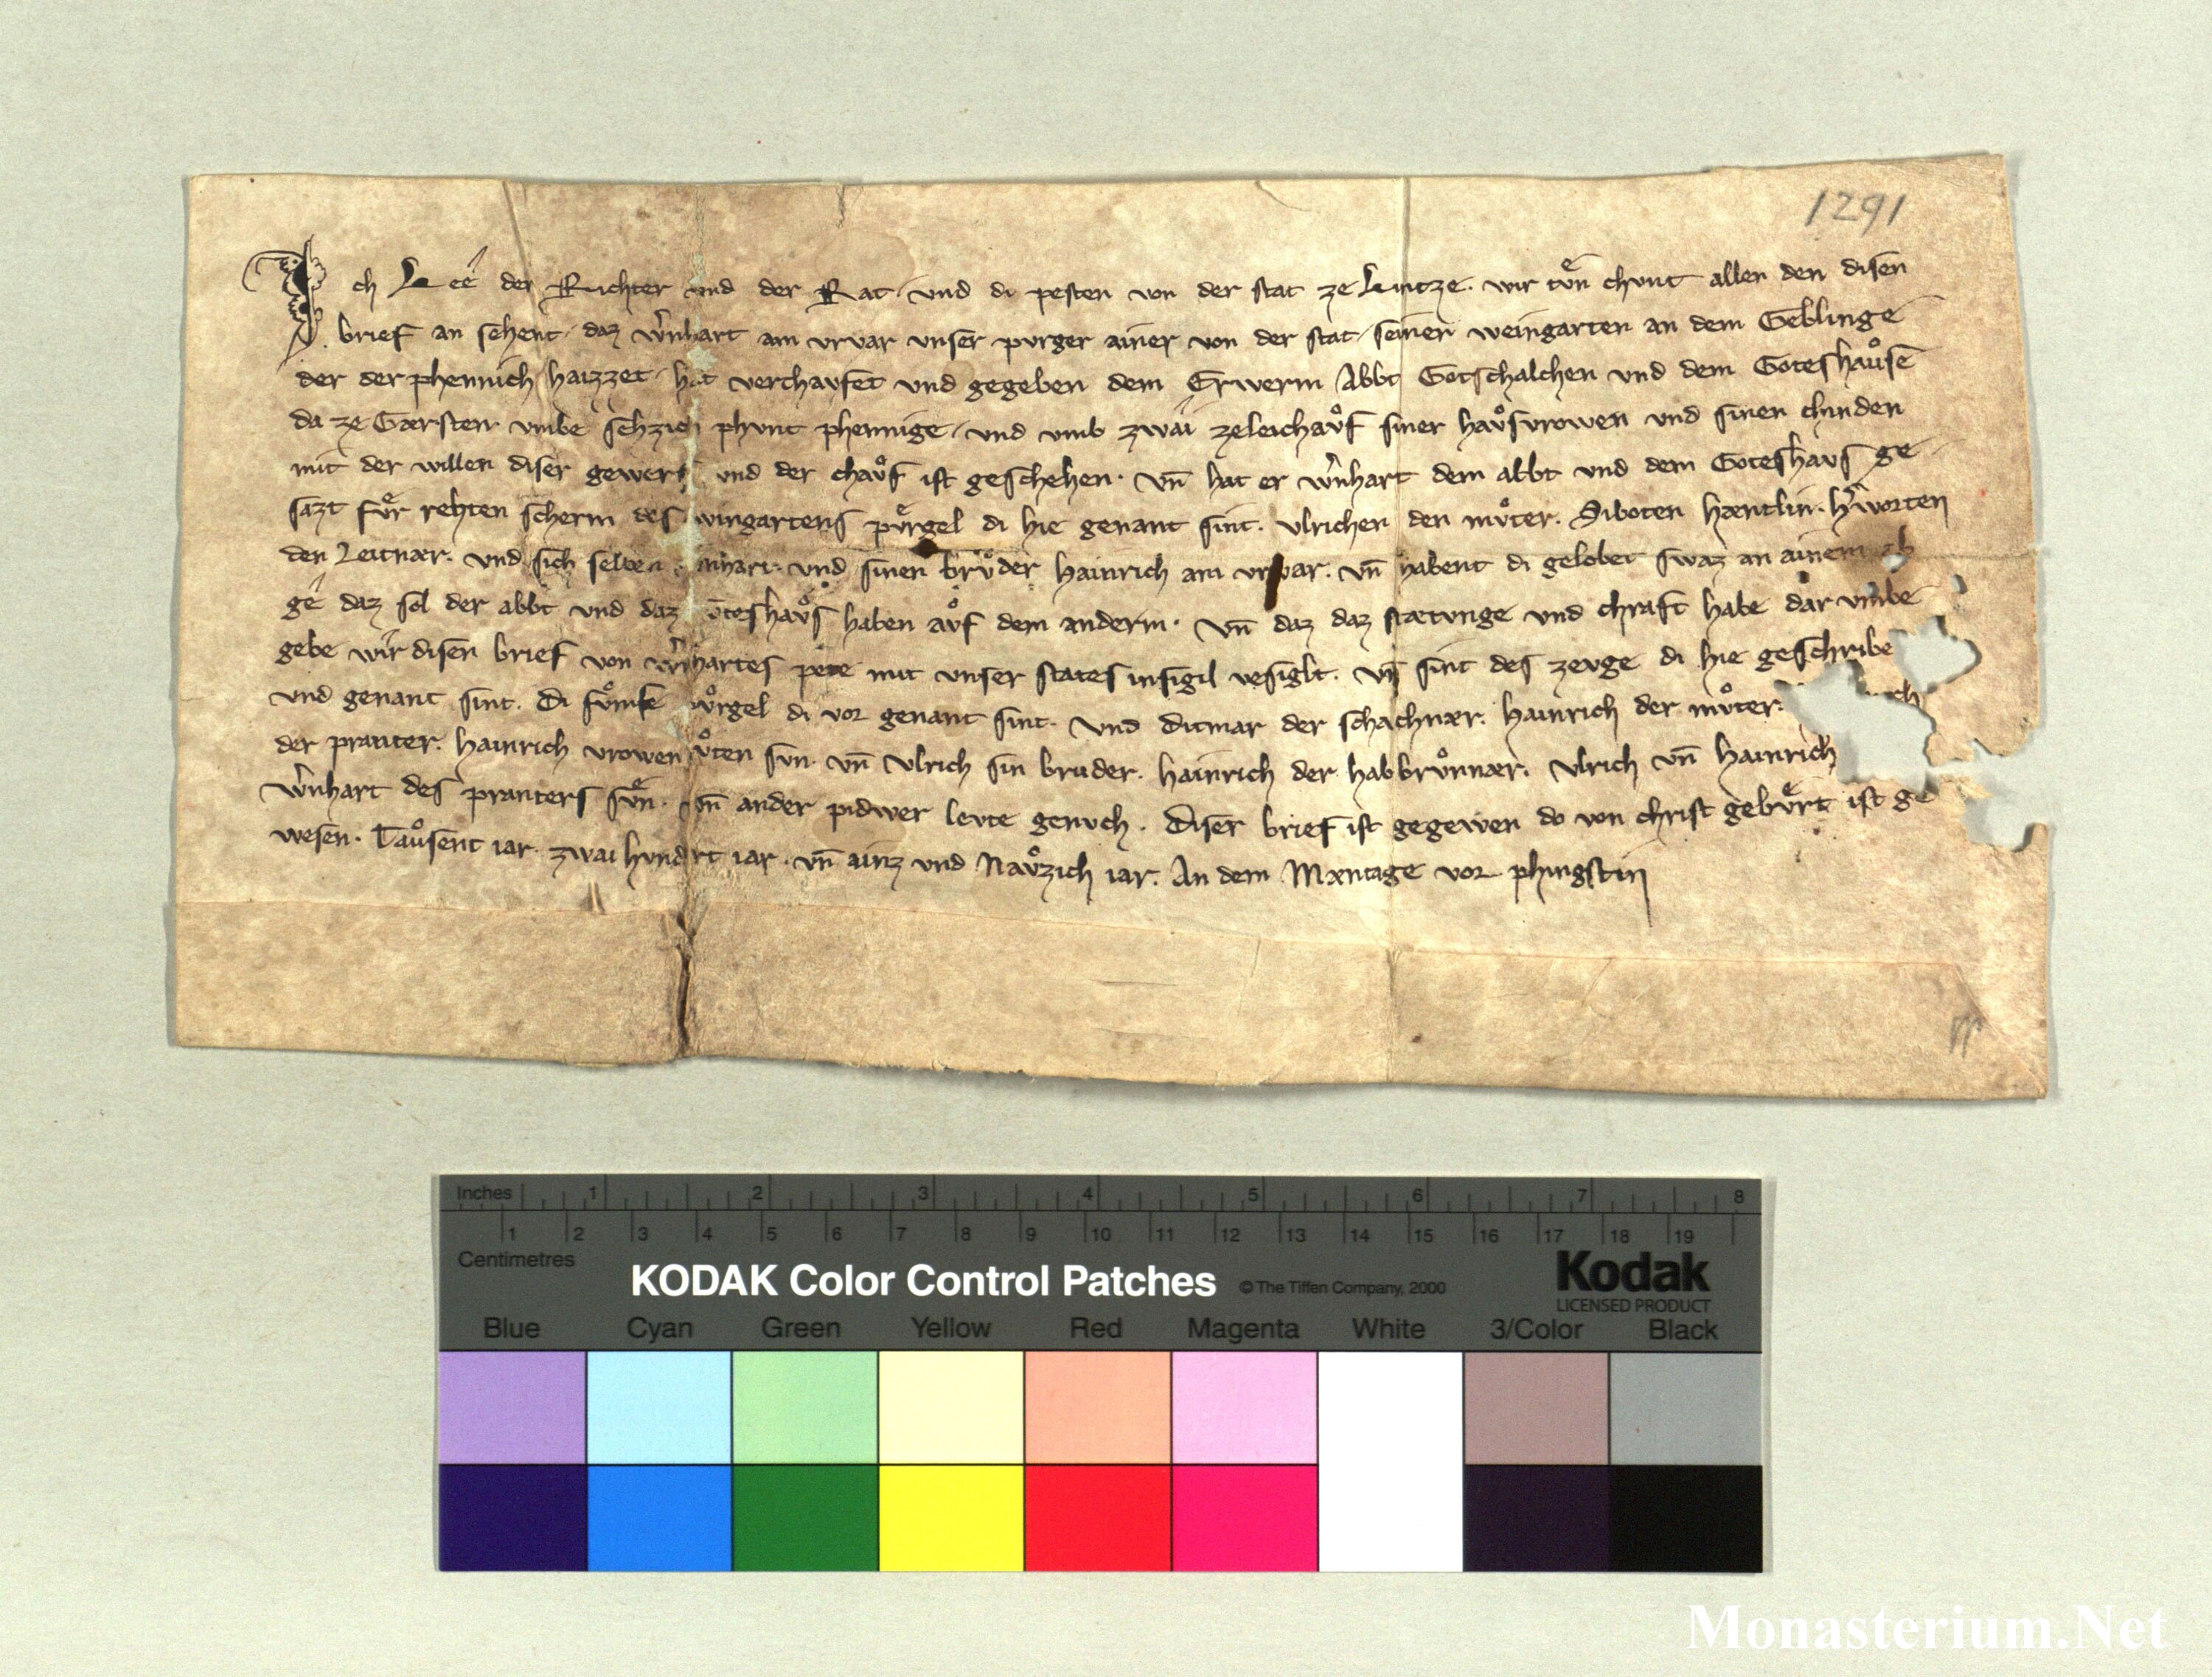 1291
Ich Lee der Richter und der Rat und di pesten von der stat ze Lintze. wir tuͤn chvnt allen den disen
brief an sehent daz w̄nhart am vrvar vnser purger ainer von der stat seinen weingarten an dem Geblinge
der der phennich haizzet hat verchavfet und gegeben dem Erwerm Abbt Gotschalchen und dem Goteshauͦse
da ze Gærsten vmbe sehzich phvnt phennige und vmb zwai zeleichavͦf siner havͦsvrowen und sinen chinden
mit der willen diser gewerf und der chavͦf ist geschehen. vn̄ hat er w̄nhart dem abbt und dem Goteshavs ge
sazt fuͤr rehten scherm des wingartens puͤrgel di hie genant sint. vlrichen den muͦter. Siboten hæntlin. h̄worten
den Leitnær. und sich selben nhart und sinen bruͦder hainrich am vrvar. vn̄ habent di gelobet swaz an ainem ab
ge daz sol der abbt und daz oteshavͦs haben avͦf dem anderm. vn̄ daz daz stætvnge und chraft habe dar vmbe
gebe wir disen brief von w̄nhartes pete mit vnser states insigil vesiglt. vn̄ sint des zevge di hie geschribe
und genant sint. Di fuͦmfe puͦrgel di vor genant sint. und Ditmar der schachnær. hainrich der muͦter. ch
der pranter. hainrich vrowen vͦten svn. vn̄ vlrich sin bruder. hainrich der habbruͦnnær. vlrich vn̄ hainrich
w̄nhart des pranters suͤn. vn̄ ander pidwer levte genvch. Diser brief ist gegewen do von christ gebuͤrt ist ge
wesen. Tauͦsent iar. zwai hvndert iar. vn̄ ainz und Navͦzich iar. An dem Mæntage vor phingstin
Inches 1 2 3 4 5 6 7 8
1 2 3 4 5 6 7 8 9 10 11 12 13 14 15 16 17 18 19
Centimetres
KODAK Color Control Patches © The Tiffen Company, 2000 Kodak
LICENSED PRODUCT
Blue Cyan Green Yellow Red Magenta White 3/Color Black
Monasterium.Net